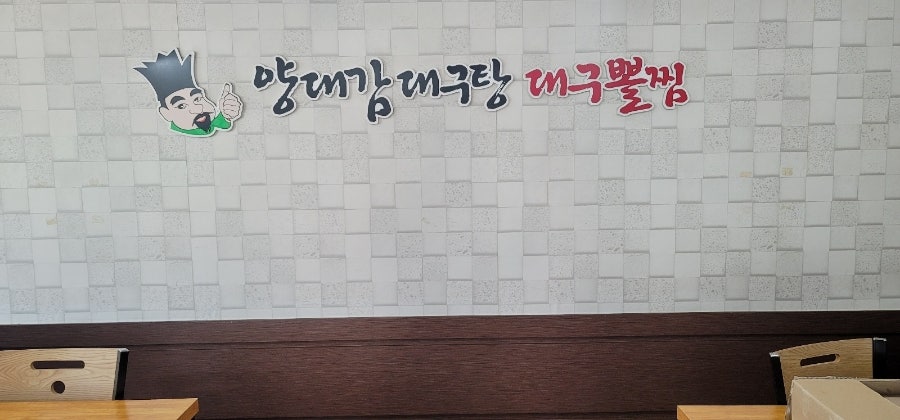 양대감대구탕 대구뽈찜